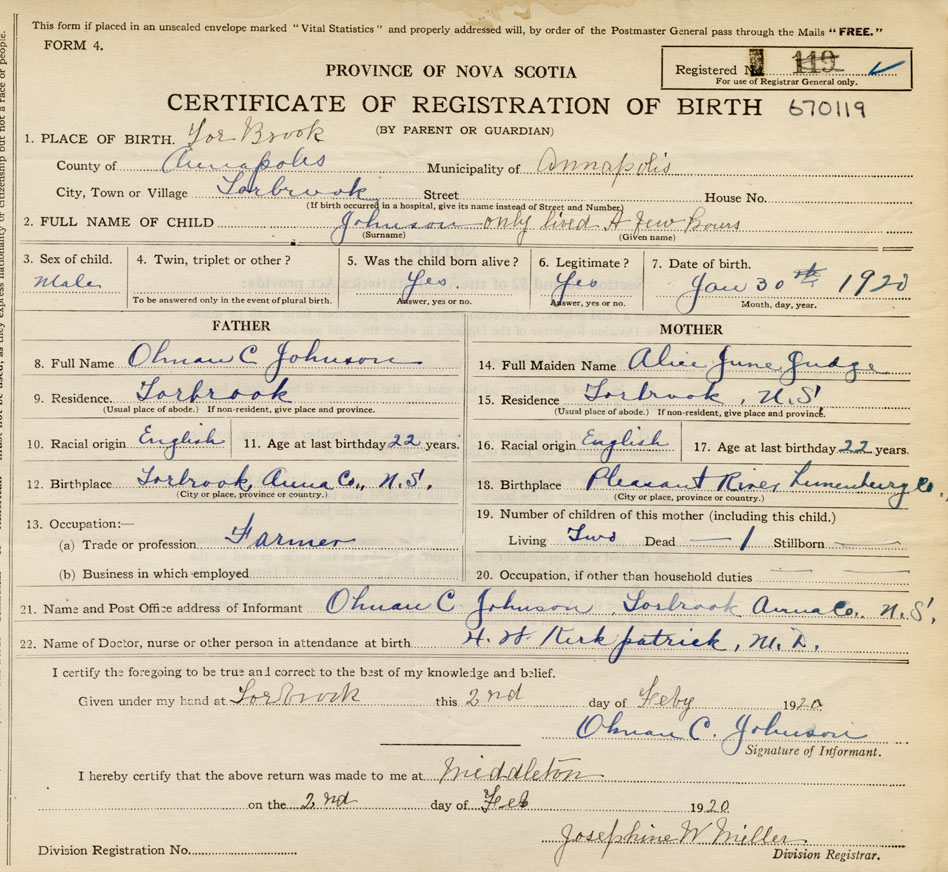 This form if placed in an unsealed envelope marked "Vital Statistics" and properly addressed will, by order of the Postmaster General pass through the Mails "FREE."
FORM 4.
Registered 119
For use of Registrar General only.
PROVINCE OF NOVA SCOTIA
CERTIFICATE OF REGISTRATION OF BIRTH 670119
(BY PARENT OR GUARDIAN)
1. PLACE OF BIRTH. Tor Brook
County of Annapolis Municipality of Annapolis
City, Town or Village Torbrook Street House No.
(If birth occurred in a hospital, give its name instead of Street and Number)
2. FULL NAME OF CHILD Johnson only lived A few hours
(Surname) (Given name)
3. Sex of child. 4. Twin, triplet or other? 5. Was the child born alive? 6. Legitimate? 7. Date of birth.
Male Yes. Yes Jan 30th 1920
To be answered only in the event of plural birth. Answer, yes or no. Answer, yes or no. Month, day, year.
FATHER MOTHER
8. Full Name Ohman C Johnson 14. Full Maiden Name Alice June Judge
9. Residence. Torbrook 15. Residence Torbrook, N.S.
(Usual place of abode.) If non-resident, give place and province. (Usual place of abode.) If non-resident, give place and province.
10. Racial origin English 11. Age at last birthday 22 years. 16. Racial origin English 17. Age at last birthday 22 years.
12. Birthplace Torbrook, Anna Co., N.S. 18. Birthplace Pleasant River, Lunenburg Co.,
(City or place, province or country.) (City or place, province or country.)
13. Occupation:— 19. Number of children of this mother (including this child.)
(a) Trade or profession Farmer Living Two Dead — 1 Stillborn —
(b) Business in which employed 20. Occupation, if other than household duties — —
21. Name and Post Office address of Informant Ohman C Johnson, Torbrook Anna Co., N.S.
22. Name of Doctor, nurse or other person in attendance at birth H. H. Kirkpatrick, M.D.
I certify the foregoing to be true and correct to the best of my knowledge and belief.
Given under my hand at Torbrook this 2nd day of Feby 1920
Ohman C. Johnson
Signature of Informant.
I hereby certify that the above return was made to me at Middleton
on the 2nd day of Feb 1920
Josephine W Miller
Division Registrar.
Division Registration No.